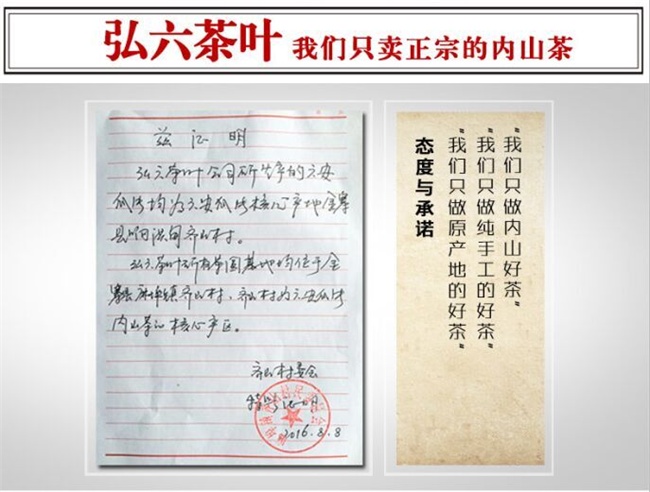 弘六茶叶 我们只卖正宗的内山茶
兹证明
弘六茶叶公司所生产的六安
瓜片均为六安瓜片核心产地金寨
县响洪甸齐山村。
弘六茶叶所有茶园基地均位于金
寨县麻埠镇齐山村,齐山村为六安瓜片
内山茶的核心产区。
齐山村委会
特此证明
2016.8.8
"我们只做内山好茶"
"我们只做纯手工的好茶"
"我们只做原产地的好茶"
态度与承诺